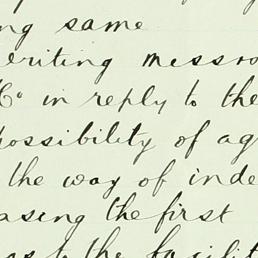 ng same
eriting messrs
Co in reply to the
possibility of ag
the way of inde
asing the first
as to the facilit